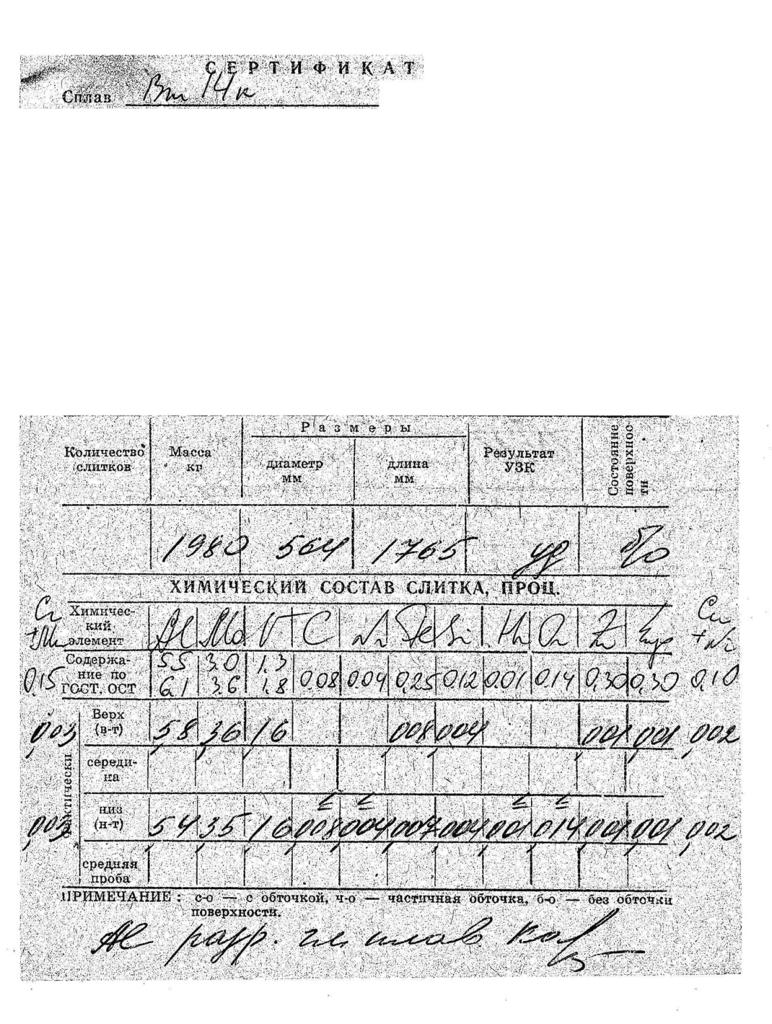 СЕРТИФИКАТ
Сплав Вт 14к
Размеры
Количество слитков Масса кг диаметр мм длина мм Результат УЗК Состояние поверхности
1980 564 1765 уд б/о
ХИМИЧЕСКИЙ СОСТАВ СЛИТКА, ПРОЦ.
Химический элемент Al Mo V C Fe Si Zr Cu + Ni
Содержание по ГОСТ. ОСТ
0,15 5.5 6.1 3.0 3.6 1.3 1.8 0.08 0.04 0,25 0.12 0.01 0.14 0,30 0,30 0,10
фактически
Верх (в-т) 0,03 5,8 3,6 1,6 008 004 001 001 ,002
середина
низ (н-т) ,003 5,4 3,5 1,6 ≤ 008 ≤ 004 007 004 ≤ 001 ≤ 014 001 001 ,002
средняя проба
ПРИМЕЧАНИЕ: с-о — с обточкой, ч-о — частичная обточка, б-о — без обточки
поверхности.
Al разр.